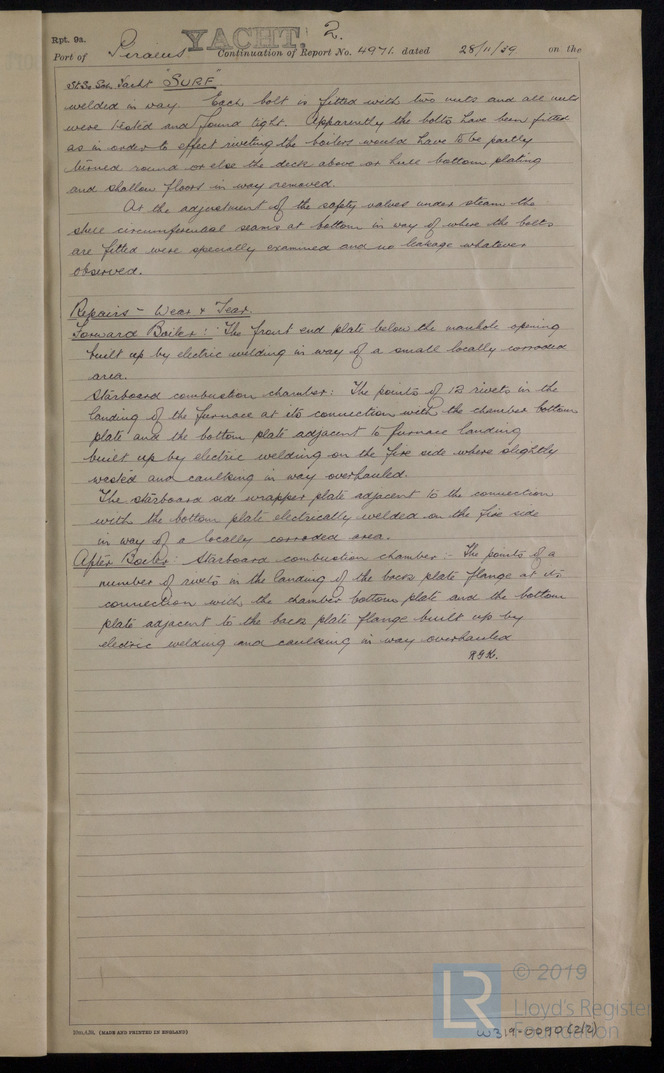 Rpt. 9a.
YACHT. 2.
Port of Piraeus Continuation of Report No. 4971. dated 28/11/39 on the
St. Sc. Sch. Yacht "SURF"
welded in way. Each bolt is fitted with two nuts and all nuts
were tested and found tight. Apparently the bolts have been fitted
as in order to effect riveting the boilers would have to be partly
turned round or else the deck above or hull bottom plating
and shallow floors in way removed.
At the adjustment of the safety valves under steam the
shell circumferential seams at bottom in way of where the bolts
are fitted were specially examined and no leakage whatever
observed.
Repairs - Wear & Tear
Forward Boiler: The front end plate below the manhole opening
built up by electric welding in way of a small locally corroded
area.
Starboard combustion chamber: The points of 12 rivets in the
landing of the furnace at its connection with the chamber bottom
plate and the bottom plate adjacent to furnace landing
built up by electric welding on the fire side where slightly
wasted and caulking in way overhauled.
The starboard side wrapper plate adjacent to the connection
with the bottom plate electrically welded on the fire side
in way of a locally corroded area.
After Boiler: Starboard combustion chamber:- The points of a
number of rivets in the landing of the back plate flange at its
connection with the chamber bottom plate and the bottom
plate adjacent to the back plate flange built up by
electric welding and caulking in way overhauled
(MADE AND PRINTED IN ENGLAND)
LR
© 2019
Lloyd's Register
Foundation
W319-0090 (2/2)